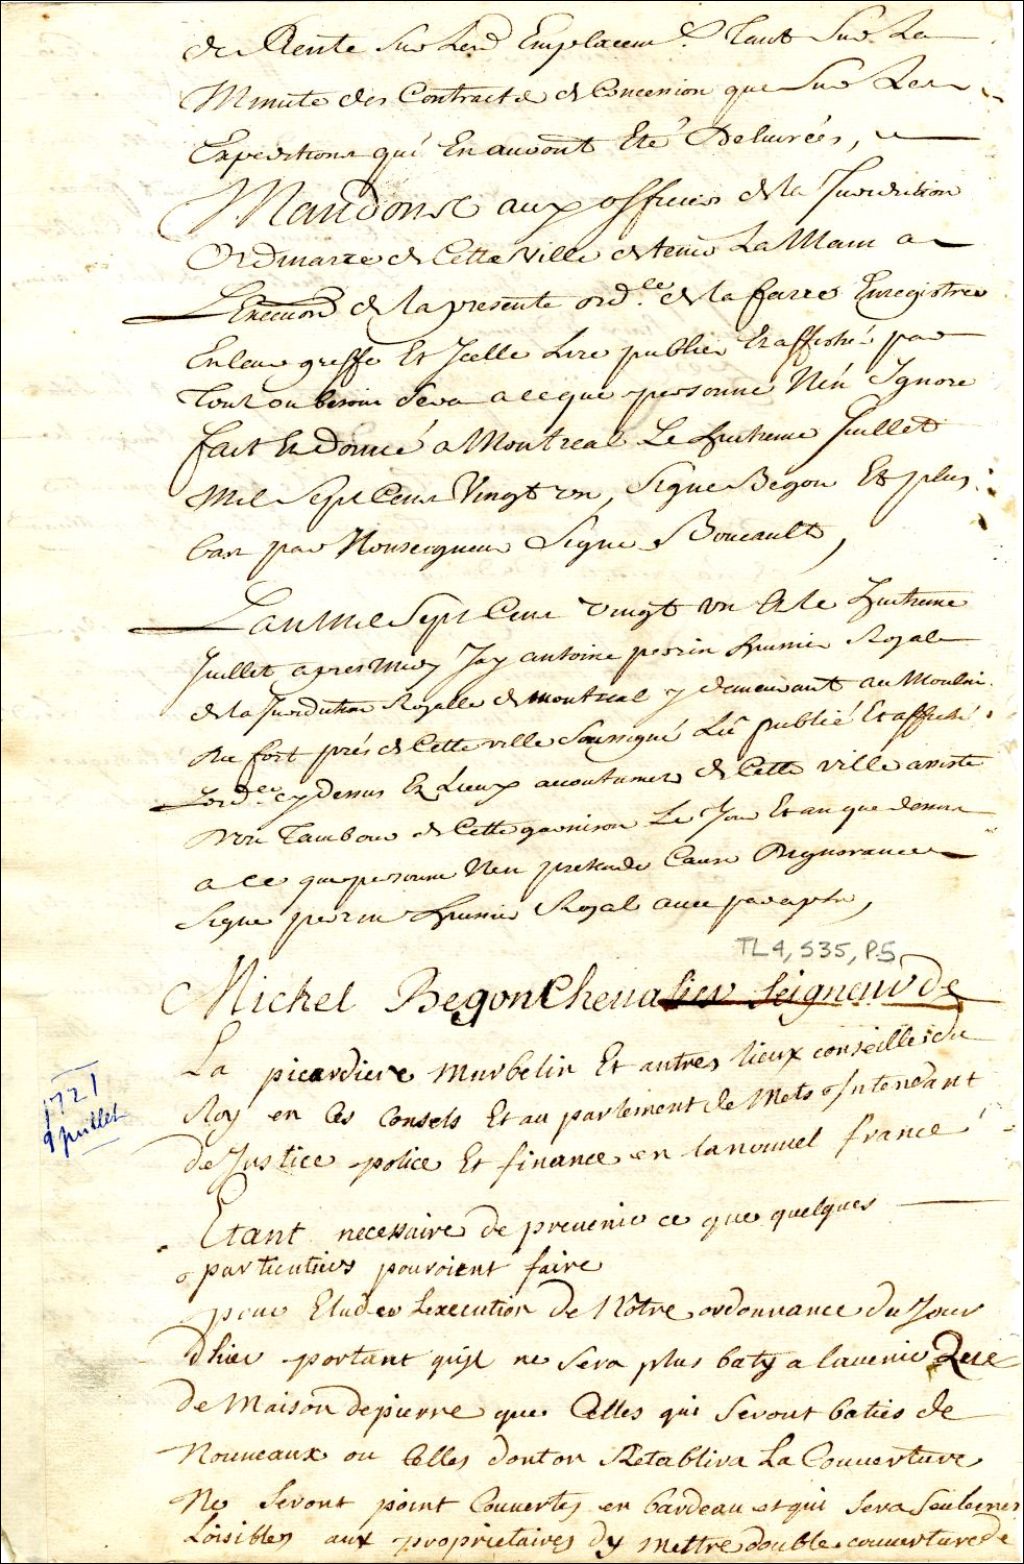 de Rente Sur Lesd Emplacem.s Tant Sur La
Minute des Contracts de Concession que Sur Les
Expeditions qui En auront Eté Deluvrées,
Mandons aux officiers de la Jurisdiction
Ordinaire de Cette Ville de tenir La Main a
Lexecution de la presente ord.ce de la faire Enregistrer
En leur greffe Et Icelle Lire publier Et affiché par
Tout ou besoin Sera a ce que personne N'en Ignore
fait Et donné a Montreal Le huitieme Juillet
Mil Sept Cent Vingt un, Signé Begon Et plus
bas par Monseigneur Signé Boucault,
Lan Mil Sept Cent Vingt un Et le huitieme
Juillet apres Midy Jay antoine perrin huissier Royal
de la Jurisdiction Royalle de Montreal y demeurant au Moulin
du fort près de Cette ville Soussigné Lû publié Et affiché
Lord.ce cy dessus Es Lieux accoutumez de Cette ville assisté
d'un Tambour de Cette garnison Le Jour Et an que dessus
a ce que personne N'en pretende Cause Dignorance
Signé perrin huissier Royal avec paraphe,
TL4, S35, P.5
Michel Begon Chevalier Seigneur de
La picardiere Murbelin Et autres lieux conseiller du
Roy en Ces Conseils Et au parlement de Mets Intendant
de Justice police Et finance en la nouvel france
1721
9 juillet
Etant necessaire de prevenir ce que quelques
particuliers pouroient faire
pour Eluder Lexecution de Notre ordonnance du Jour
dhier portant quil ne Sera plus baty a lavenir que
de Maison de pierre que Celles qui Seront baties de
Nouveaux ou Celles dont on Retablira La Couverture
Ne Seront point Couvertes en bardeau et qui Sera Seulemen
Loisibles aux proprietaires dy mettre double couverture de